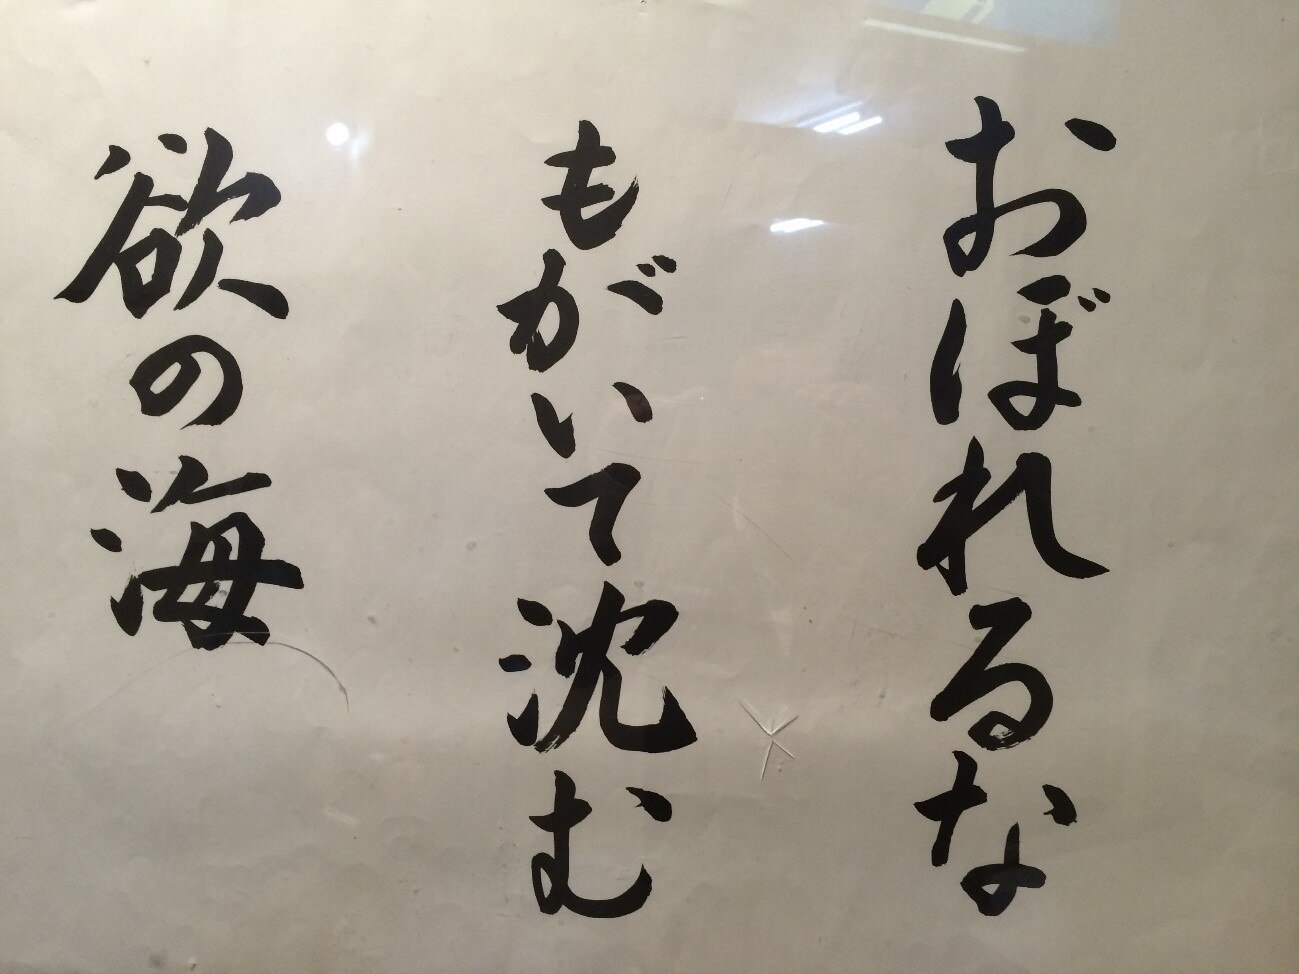 おぼれるな
もがいて沈む
欲の海